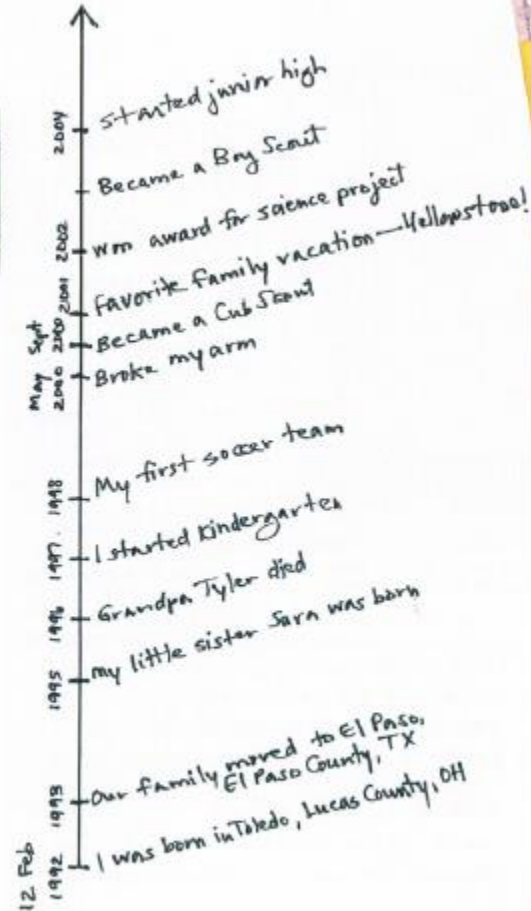 2004 Started junior high
Became a Boy Scout
2002 Won award for science project
2001 Favorite family vacation—Yellowstone!
Sept 2000 Became a Cub Scout
May 2000 Broke my arm
1998 My first soccer team
1997. I started Kindergarten
1996 Grandpa Tyler died
1995 My little sister Sara was born
1993 Our family moved to El Paso,
El Paso County, TX
12 Feb 1992 I was born in Toledo, Lucas County, OH